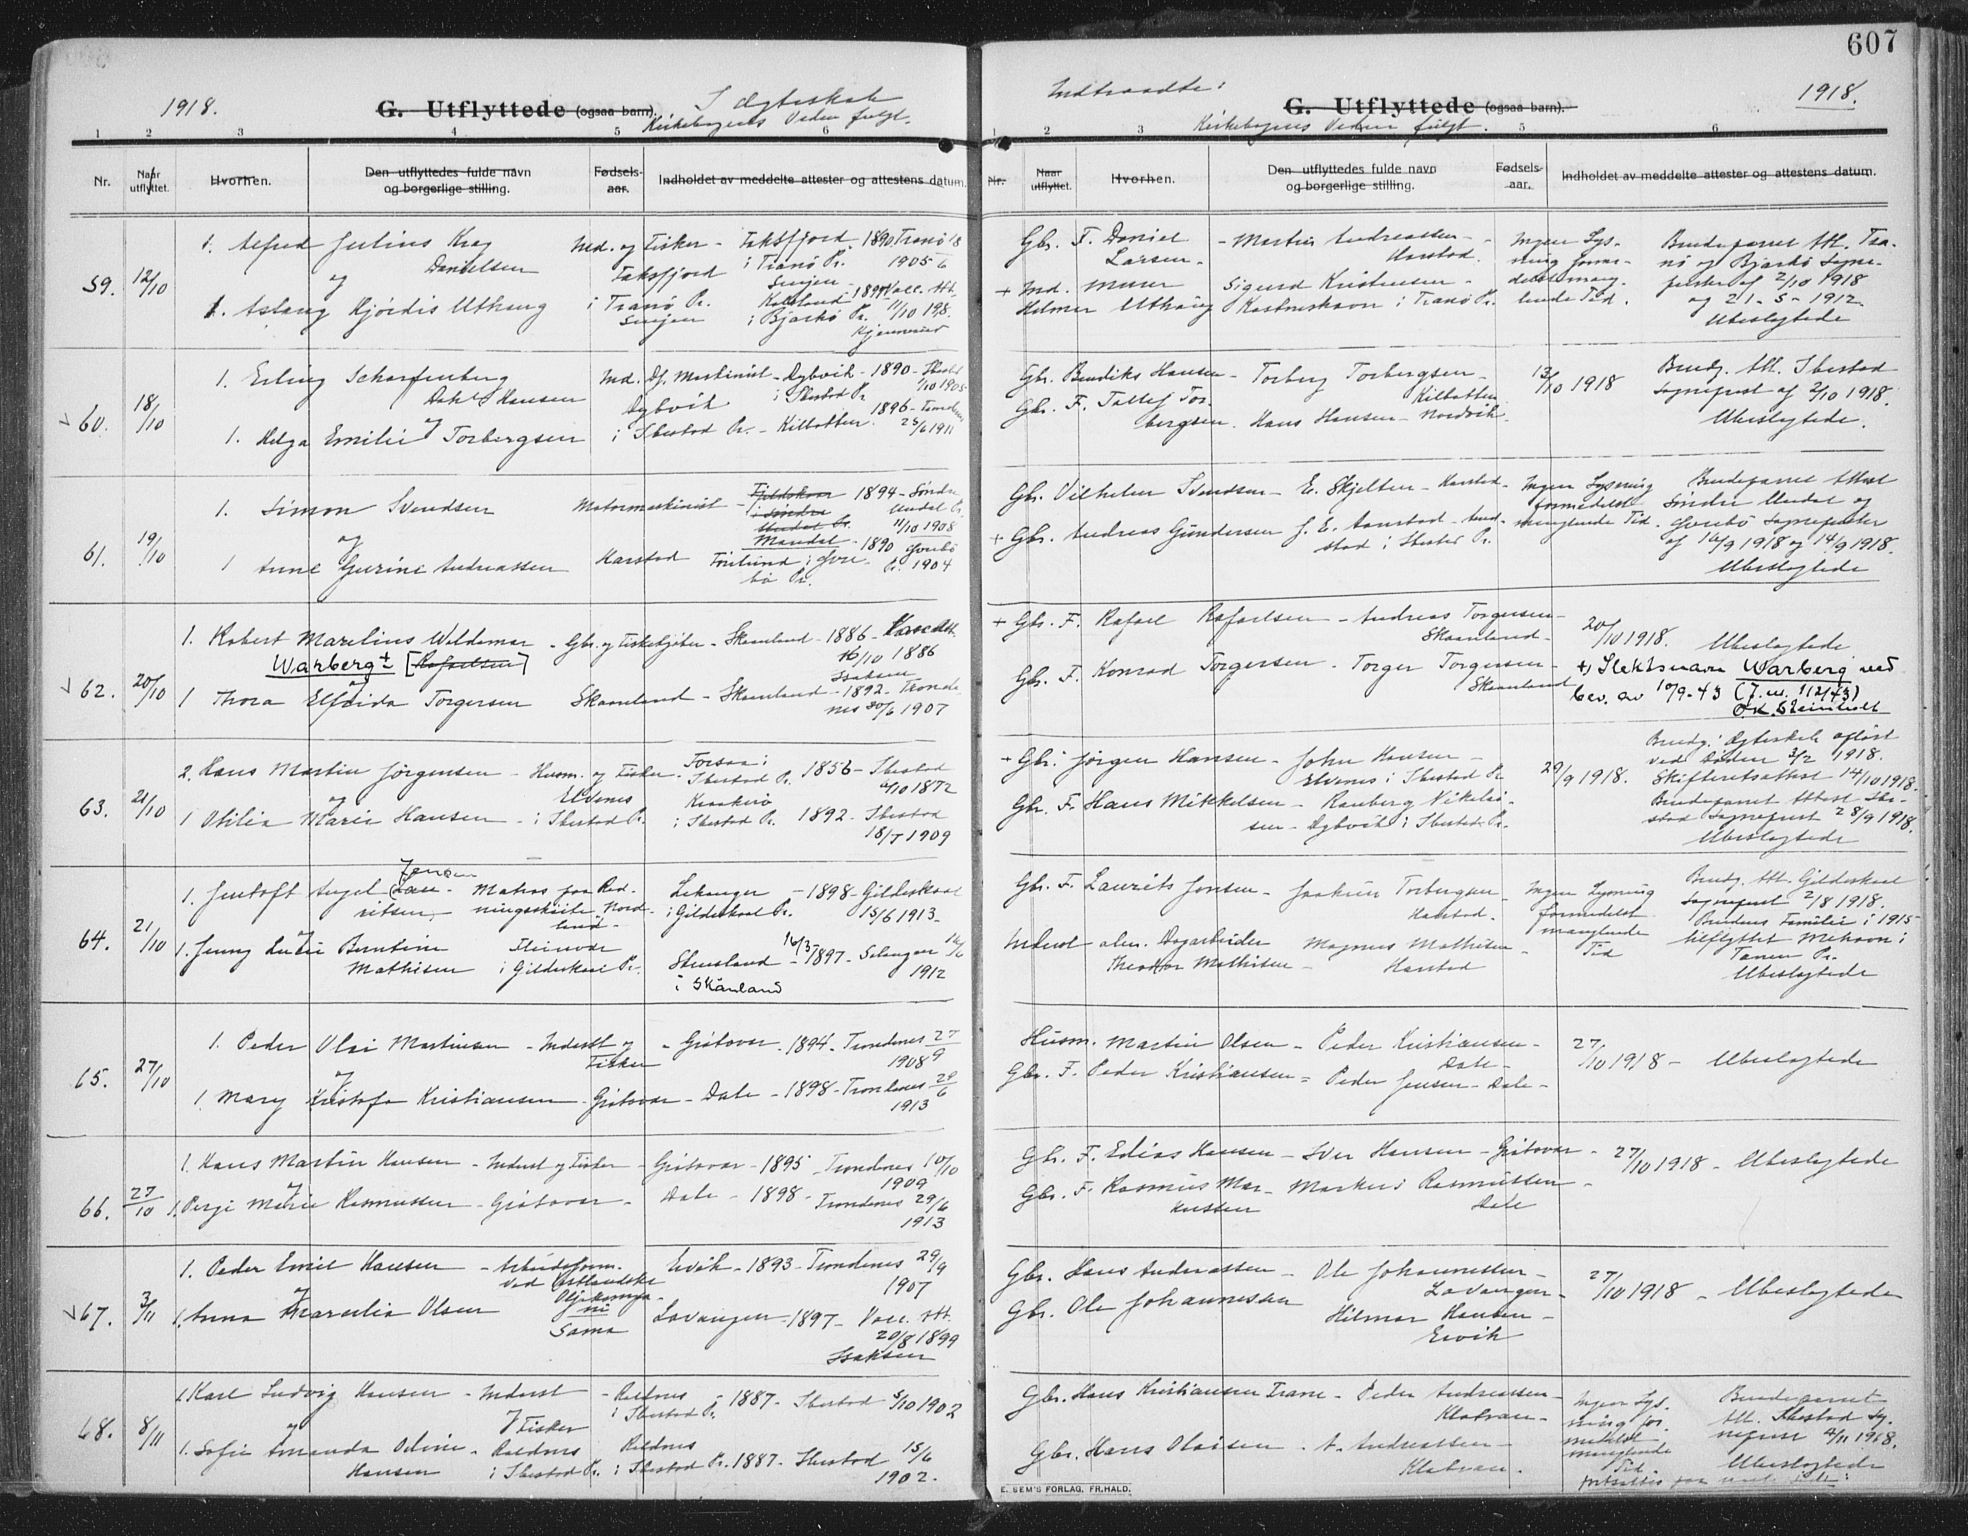 607
1918.
G. Utflyttede (ogsaa barn).
I Ægteskab
Kirkebogens Orden fulgt.
Indtraadte:
G. Utflyttede (ogsaa barn).
Kirkebogens Orden fulgt.
1918.
1 2 3 4 5 6
1 2 3 5 6
Nr. Naar utflyttet. Hvorhen. Den utflyttedes fulde navn og borgerlige stilling. Fødsels-aar. Indholdet av meddelte attester og attestens datum.
Nr. Naar utflyttet. Hvorhen. Den utflyttedes fulde navn og borgerlige stilling. Fødsels-aar. Indholdet av meddelte attester og attestens datum.
59. 12/10
1. Alfred Julius Krag Danielsen
og
1. Aslaug Hjördis Uthaug
Ind. og Fisker - Faksfjord 1890 Tranö
Faksfjord i Tranö Pr. 1905
i Tranö Pr. Senjen
i Bjarkö Pr. 11/10 198.
Gbr. F. Daniel Larsen - Martin Andreassen - Harstad.
+ Ind. Murer Helmer Uthaug Sigurd Kristensen - i Tranö Pr.
Ingen Lysning formedelst manglende Tid.
Brudeparret Att. Tranö og Bjarkö Sogneprester af 2/10 1918
og 21-5-1912
Ubeslegtede
60. 18/10
1. Erling Scharfenberg Dahl Hansen
og
1. Helga Emilie Torbergsen
Ind. Dybvik - 1890 - Ibestad
Dybvik i Ibestad Pr. 1/10 1905
i Ibestad Pr. - Kilbotten 1896 - Trondenes 25/6 1911
Gbr. Bendiks Hansen - Torberg Torbergsen - Kilbotten
Gbr. F. Tollef Torbergsen. Hans Hansen - Nordvik.
13/10 1918
Brudg. Att. Ibestad Sogneprest af 2/10 1918.
Ubeslegtede.
61. 19/10
1. Simon Svendsen
og
1 Anne Gurine Andreassen
Motormaskinist - Fjeldskaar i Söndre Undal Pr. 1894 - Söndre Undal Pr. 11/10 1908
Mandal
Harstad - 1890 1904
Gbr. Vilhelm Svendsen - E. Skjelten - Harstad.
+ Gbr. Andreas Gundersen J. E. Aanstad - i Ibestad Pr.
Ingen Lysning formedelst manglende Tid.
Brudeparret Attest Söndre Undal og Sogneprester
af 16/9 1918 og 14/9 1918.
Ubeslegtede
62. 20/10
1. Robert Marelius Waldemar Warberg + [Rafaelsen]
og
1 Thora Elfrida Torgersen
Gbr. og Fiskekjöber - Skaanland - 1886 -
16/10 1886
Isaksen
Skaanland - Skaanland - 1892 - Trondenes 30/6 1907
+ Gbr. F. Rafael Rafaelsen - Andreas Torgersen - Skaanland -
Gbr. F. Konrad Torgersen - Torger Torgersen - Skaanland
20/10 1918. Ubeslegtede
+) Slektsnavn Warberg ved bev. av 10/9-43 (J.nr. 112/43)
O.K. Steinholt
63. 21/10
2. Hans Martin Jörgensen - Husm. og Fisker
og
1 Otilia Marie Hansen -
Elvenes i Ibestad Pr.
Forsaa i Ibestad Pr. 1856 - Ibestad 6/10 1872
Kraakerö i Ibestad Pr. 1892 - Ibestad 18/7 1909
+ Gbr. Jörgen Hansen - John Hansen - Elvenes i Ibestad Pr
Gbr. F. Hans Mikkelsen - Rauberg Nikolaisen - Dybvik i Ibestad Pr.
29/9 1918.
Brudg: Ægteskab oplöst ved Döden 3/2 1918.
Skifteretsattest 14/10 1918.
Brudeparret Attest Ibestad Sogneprest 28/9 1918.
Ubeslegtede
64. 21/10
1. Jentoft Angel Jensen (Lauritsen -
og
1. Jenny Lucie Berntine Mathisen
Matros paa Redningsskøite Nordland -
Fleinvær i Gildeskaal Pr.
Lekanger i Gildeskaal Pr. - 1898 - Gildeskaal 15/6 1913 -
Skaanland i Skånland 16/3 - 1897 - Salangen 16/6 1912
Gbr. F. Laurits Jensen - Joakim Torbergsen - Harstad.
Inderst alm. Dagarbeider Theodor Mathisen - Magnus Mathisen - Harstad
Ingen Lysning formedelst manglende Tid
Brudg. Att. Gildeskaal Sogneprest 2/8 1918.
Brudens Familie i 1915 tilflyttet Mehavn i Tanen Pr.
Ubeslegtede
65. 27/10
1. Peder Olai Martinsen - Inderst og Fisker
og
1. Mary Kristofa Kristiansen - Grötavær
- Grötavær - 1894 - Trondenes 27/9 1908
- Dale - 1898 - Trondenes 29/6 1913
Husm. Martin Olsen - Peder Kristiansen - Dale -
Gbr. F. Peder Kristiansen - Peder Jensen - Dale -
27/10 1918 - Ubeslegtede
66. 27/10
1. Hans Martin Hansen - Inderst og Fisker
og
1. Pergi Marie Rasmussen - Grötavær -
Grötavær - 1895 Trondenes 10/10 1909
Dale - 1898 - Trondenes 29/6 1913
Gbr. F. Edias Hansen - Iver Hansen - Grötavær -
Gbr. F. Rasmus Markussen - Markus Rasmussen - Dale
27/10 1918 - Ubeslegtede
67. 3/11
1. Peder Emil Hansen - Arbeidsform. ved Vestlandske Oljekompani
og
1. Anna Marselia Olsen Sama
Ervik - 1893 - Trondenes 29/9 1907
Lavangen - 1897 - Vacc. Att. 20/8 1899
Isaksen
Gbr. Hans Andreassen - Ole Johannessen - Lavangen -
Gbr. Ole Johannessen Hilmar Hansen - Ervik
27/10 1918 - Ubeslegtede
68. 8/11
1. Karl Ludvig Hansen - Inderst og Fisker
og
1. Sofie Amanda Odine Hansen - Roldnes i Ibestad Pr.
- Roldnes i Ibestad Pr. - 1887 - Ibestad 5/10 1902
Roldnes i Ibestad Pr. 1887 - Ibestad 15/6 1902.
Gbr. Hans Kristiansen Trane - Peder Andreassen - Klatran -
Gbr. Hans Olaisen. A. Andreassen - Klatran.
Ingen Lysning formedelst manglende Tid.
Brudeparret Att. Ibestad Sogneprest 4/11 1918.
Ubeslegtede
E. SEM'S FORLAG, FR.HALD.